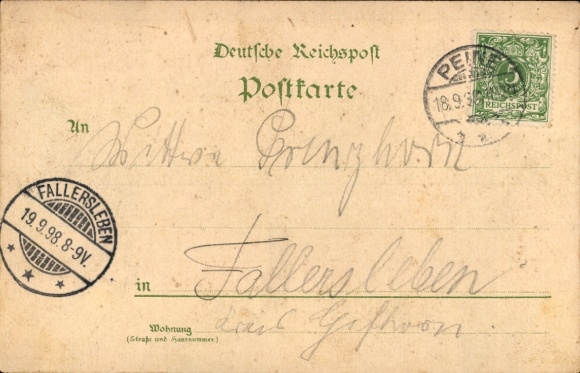 Deutsche Reichspost
Postkarte
PEINE
18.9.9
5
REICHSPOST
An
Wittwe
FALLERSLEBEN
19.9.98.8-9V.
in
Fallersleben
Wohnung
(Straße und Hausnummer)
Kreis Gifhorn.